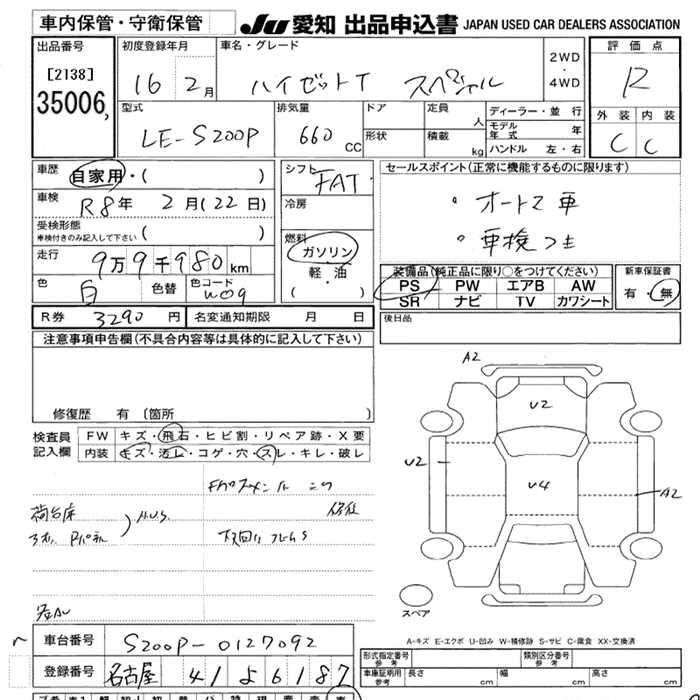 車内保管・守衛保管
JU 愛知 出品申込書 JAPAN USED CAR DEALERS ASSOCIATION
出品番号
[2138]
35006
初度登録年月
16 2月
車名・グレード
ハイゼットT スペシャル
2WD
・
4WD
評価点
R
外装 内装
C C
型式
LE-S200P
排気量
660 CC
ドア
形状
定員 人
積載 kg
ディーラー・並行
モデル年式 年
ハンドル 左・右
車歴
自家用・( )
車検
R8年 2月(22日)
受検形態
車検付きのみ記入して下さい ( )
走行
9万9千980km
色
白
色替
色コード
W09
シフト
FAT
冷房
燃料
ガソリン
軽・油
( )
セールスポイント(正常に機能するものに限ります)
・オートマ車
・車検つき
装備品(純正品に限り○をつけてください)
PS PW エアB AW
SR ナビ TV カワシート
新車保証書
有・無
R券 3290円 名変通知期限 月 日
後日品
注意事項申告欄(不具合内容等は具体的に記入して下さい)
修復歴 有〔箇所
検査員
記入欄
FW キズ・飛石・ヒビ割・リペア跡・X要
内装 キズ・汚レ・コゲ・穴・スレ・キレ・破レ
荷台床
下回り フレームS
A2
U2
U2
U4
A2
スペア
A-キズ E-エクボ U-凹み W-補修跡 S-サビ C-腐食 XX-交換済
車台番号 S200P-0127092
登録番号 名古屋 41 よ 6187
形式指定番号
参考
類別区分番号
参考
車庫証明用
参考
長さ cm 幅 cm 高さ cm